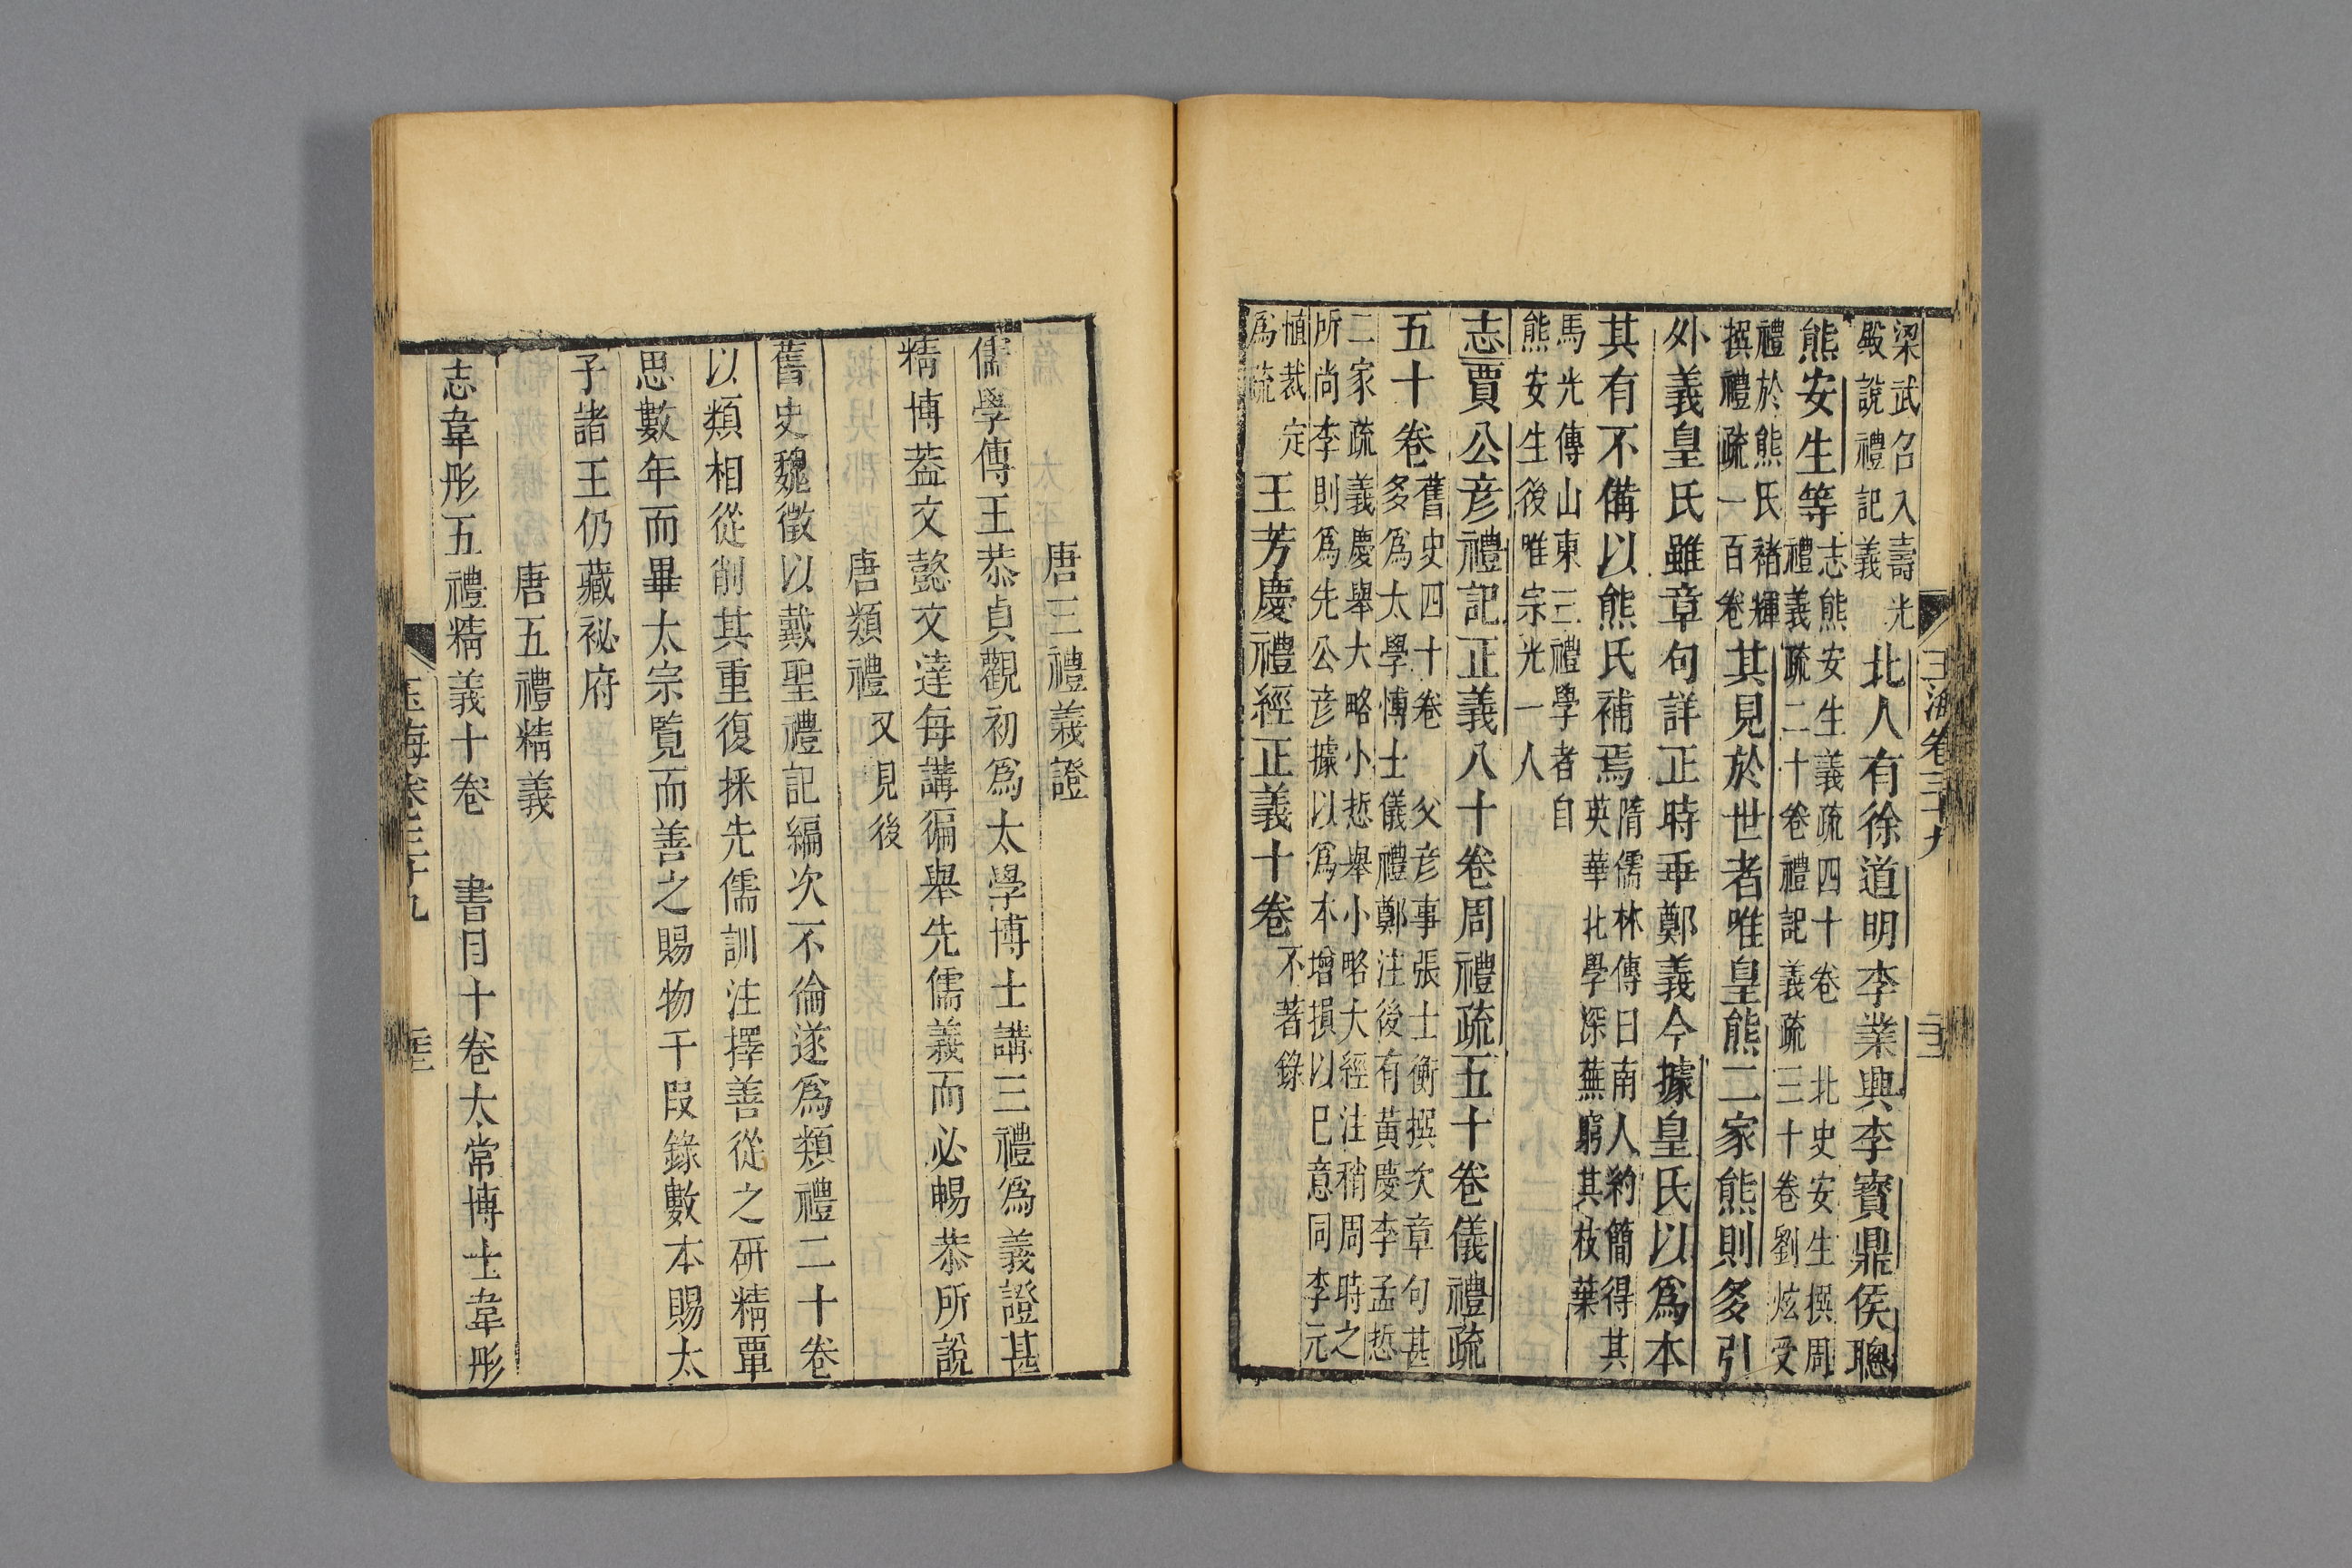 梁武召入壽光
殿說禮記義
北人有徐道明李業興李寶鼎侯聰
熊安生等
志熊安生義疏四十卷 北史安生撰周
禮義疏二十卷禮記義疏三十卷劉炫受
禮於熊氏褚輝
撰禮疏一百卷
其見於世者唯皇熊二家熊則多引
外義皇氏雖章句詳正時乖鄭義今據皇氏以爲本
其有不備以熊氏補焉
隋儒林傳曰南人約簡得其
英華北學深蕪窮其枝葉
馬光傳山東三禮學者自
熊安生後唯宗光一人
志賈公彦禮記正義八十卷周禮疏五十卷儀禮疏
五十卷
舊史四十卷 父彦事張士衡撰次章句甚
多爲太學博士儀禮鄭注後有黃慶李孟悊
二家疏義慶舉大略小悊舉小略大經注稍周時之
所尚李則爲先公彦據以爲本增損以巳意同李元
植裁定
爲疏
王芳慶禮經正義十卷
不著錄
玉海卷三十九
唐三禮義證
儒學傳王恭貞觀初爲太學博士講三禮爲義證甚
精博蓋文懿文達每講徧舉先儒義而必暢恭所說
唐類禮 又見後
舊史魏徵以戴聖禮記編次不倫遂爲類禮二十卷
以類相從削其重復採先儒訓注擇善從之研精覃
思數年而畢太宗覽而善之賜物千叚錄數本賜太
子諸王仍藏祕府
唐五禮精義
志韋彤五禮精義十卷 書目十卷太常博士韋彤
玉海卷三十九